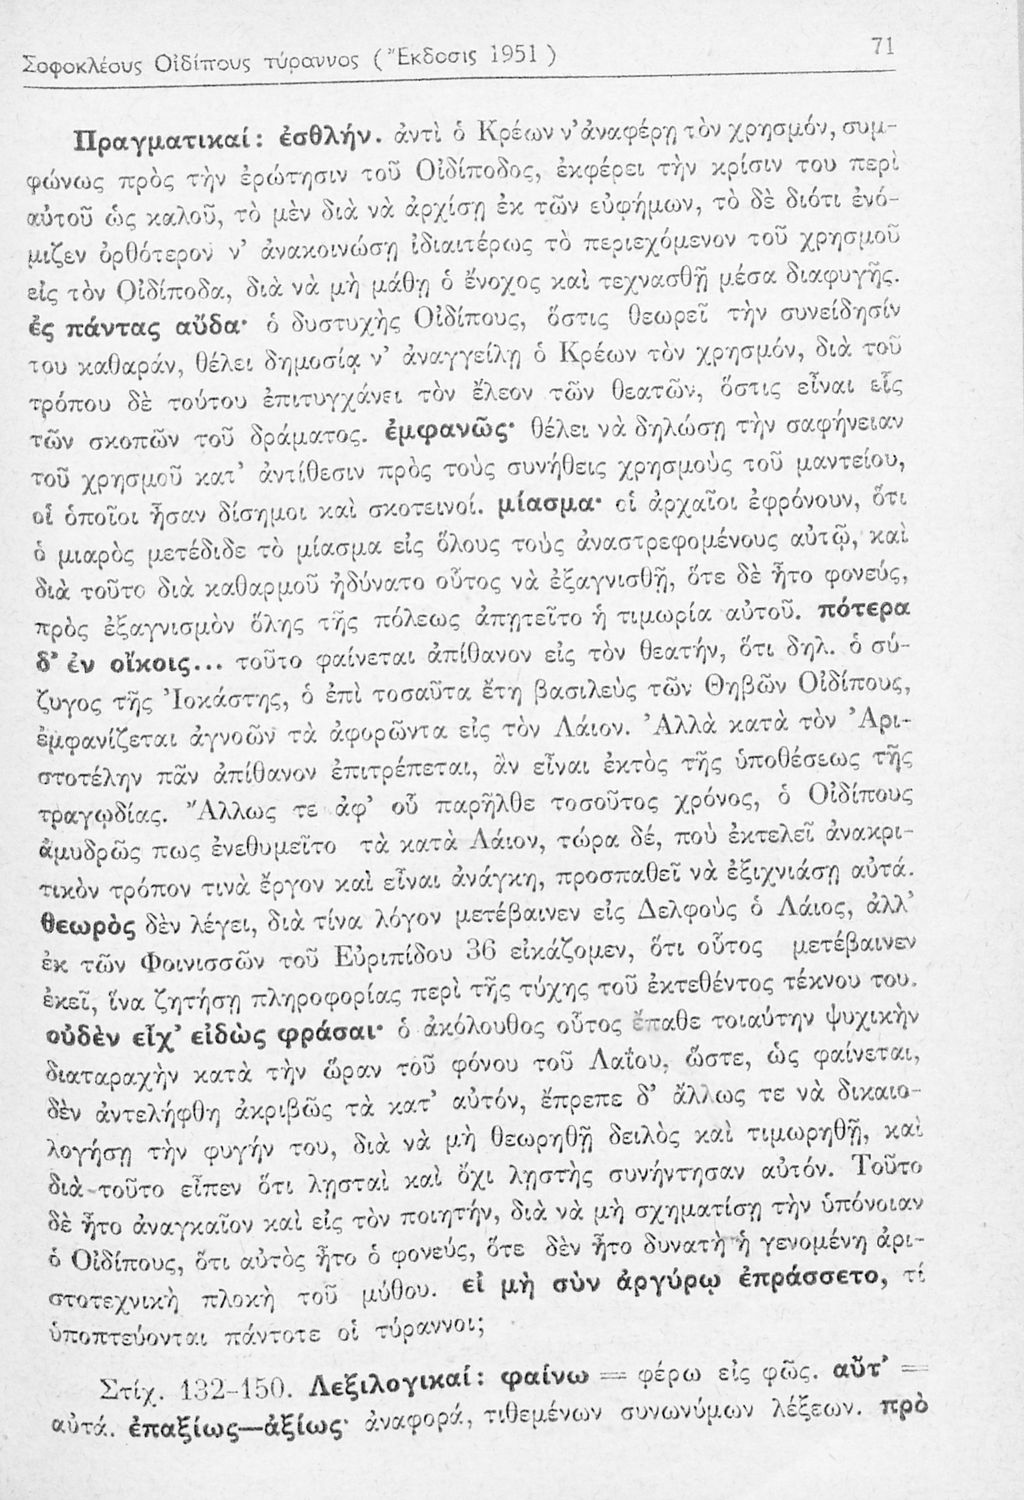 Σοφοκλέους Οἰδίπους τύραννος (Ἔκδοσις 1951)
71
Πραγματικαί: ἐσθλήν. ἀντὶ ὁ Κρέων ν’ ἀναφέρῃ τὸν χρησμόν, συμ-
φώνως πρὸς τὴν ἐρώτησιν τοῦ Οἰδίποδος, ἐκφέρει τὴν κρίσιν του περὶ
αὐτοῦ ὡς καλοῦ, τὸ μὲν διὰ νὰ ἀρχίσῃ ἐκ τῶν εὐφήμων, τὸ δὲ διότι ἐνό-
μιζεν ὀρθότερον ν’ ἀνακοινώσῃ ἰδιαιτέρως τὸ περιεχόμενον τοῦ χρησμοῦ
εἰς τὸν Οἰδίποδα, διὰ νὰ μὴ μάθῃ ὁ ἔνοχος καὶ τεχνασθῇ μέσα διαφυγῆς.
ἐς πάντας αὔδα· ὁ δυστυχὴς Οἰδίπους, ὅστις θεωρεῖ τὴν συνείδησίν
του καθαράν, θέλει δημοσίᾳ ν’ ἀναγγείλῃ ὁ Κρέων τὸν χρησμόν, διὰ τοῦ
τρόπου δὲ τούτου ἐπιτυγχάνει τὸν ἔλεον τῶν θεατῶν, ὅστις εἶναι εἷς
τῶν σκοπῶν τοῦ δράματος. ἐμφανῶς· θέλει νὰ δηλώσῃ τὴν σαφήνειαν
τοῦ χρησμοῦ κατ’ ἀντίθεσιν πρὸς τοὺς συνήθεις χρησμοὺς τοῦ μαντείου,
οἱ ὁποῖοι ἦσαν δίσημοι καὶ σκοτεινοί. μίασμα· οἱ ἀρχαῖοι ἐφρόνουν, ὅτι
ὁ μιαρὸς μετέδιδε τὸ μίασμα εἰς ὅλους τοὺς ἀναστρεφομένους αὐτῷ, καὶ
διὰ τοῦτο διὰ καθαρμοῦ ἠδύνατο οὗτος νὰ ἐξαγνισθῇ, ὅτε δὲ ἦτο φονεύς,
πρὸς ἐξαγνισμὸν ὅλης τῆς πόλεως ἀπῃτεῖτο ἡ τιμωρία αὐτοῦ. πότερα
δ’ ἐν οἴκοις... τοῦτο φαίνεται ἀπίθανον εἰς τὸν θεατήν, ὅτι δηλ. ὁ σύ-
ζυγος τῆς Ἰοκάστης, ὁ ἐπὶ τοσαῦτα ἔτη βασιλεὺς τῶν Θηβῶν Οἰδίπους,
ἐμφανίζεται ἀγνοῶν τὰ ἀφορῶντα εἰς τὸν Λάιον. Ἀλλὰ κατὰ τὸν Ἀρι-
στοτέλην πᾶν ἀπίθανον ἐπιτρέπεται, ἂν εἶναι ἐκτὸς τῆς ὑποθέσεως τῆς
τραγῳδίας. Ἄλλως τε ἀφ’ οὗ παρῆλθε τοσοῦτος χρόνος, ὁ Οἰδίπους
ἀμυδρῶς πως ἐνεθυμεῖτο τὰ κατὰ Λάιον, τώρα δέ, ποὺ ἐκτελεῖ ἀνακρι-
τικὸν τρόπον τινὰ ἔργον καὶ εἶναι ἀνάγκη, προσπαθεῖ νὰ ἐξιχνιάσῃ αὐτά.
θεωρὸς δὲν λέγει, διὰ τίνα λόγον μετέβαινεν εἰς Δελφοὺς ὁ Λάιος, ἀλλ’
ἐκ τῶν Φοινισσῶν τοῦ Εὐριπίδου 36 εἰκάζομεν, ὅτι οὗτος μετέβαινεν
ἐκεῖ, ἵνα ζητήσῃ πληροφορίας περὶ τῆς τύχης τοῦ ἐκτεθέντος τέκνου του.
οὐδὲν εἶχ’ εἰδὼς φράσαι· ὁ ἀκόλουθος οὗτος ἔπαθε τοιαύτην ψυχικὴν
διαταραχὴν κατὰ τὴν ὥραν τοῦ φόνου τοῦ Λαΐου, ὥστε, ὡς φαίνεται,
δὲν ἀντελήφθη ἀκριβῶς τὰ κατ’ αὐτόν, ἔπρεπε δ’ ἄλλως τε νὰ δικαιο-
λογήσῃ τὴν φυγήν του, διὰ νὰ μὴ θεωρηθῇ δειλὸς καὶ τιμωρηθῇ, καὶ
διὰ τοῦτο εἶπεν ὅτι λῃσταὶ καὶ ὄχι λῃστὴς συνήντησαν αὐτόν. Τοῦτο
δὲ ἦτο ἀναγκαῖον καὶ εἰς τὸν ποιητήν, διὰ νὰ μὴ σχηματίσῃ τὴν ὑπόνοιαν
ὁ Οἰδίπους, ὅτι αὐτὸς ἦτο ὁ φονεύς, ὅτε δὲν ἦτο δυνατὴ ἡ γενομένη ἀρι-
στοτεχνικὴ πλοκὴ τοῦ μύθου. εἰ μὴ σὺν ἀργύρῳ ἐπράσσετο, τί
ὑποπτεύονται πάντοτε οἱ τύραννοι;
Στίχ. 132-150. Λεξιλογικαί: φαίνω = φέρω εἰς φῶς. αὖτ’ =
αὐτά. ἐπαξίως—ἀξίως· ἀναφορά, τιθεμένων συνωνύμων λέξεων. πρὸ